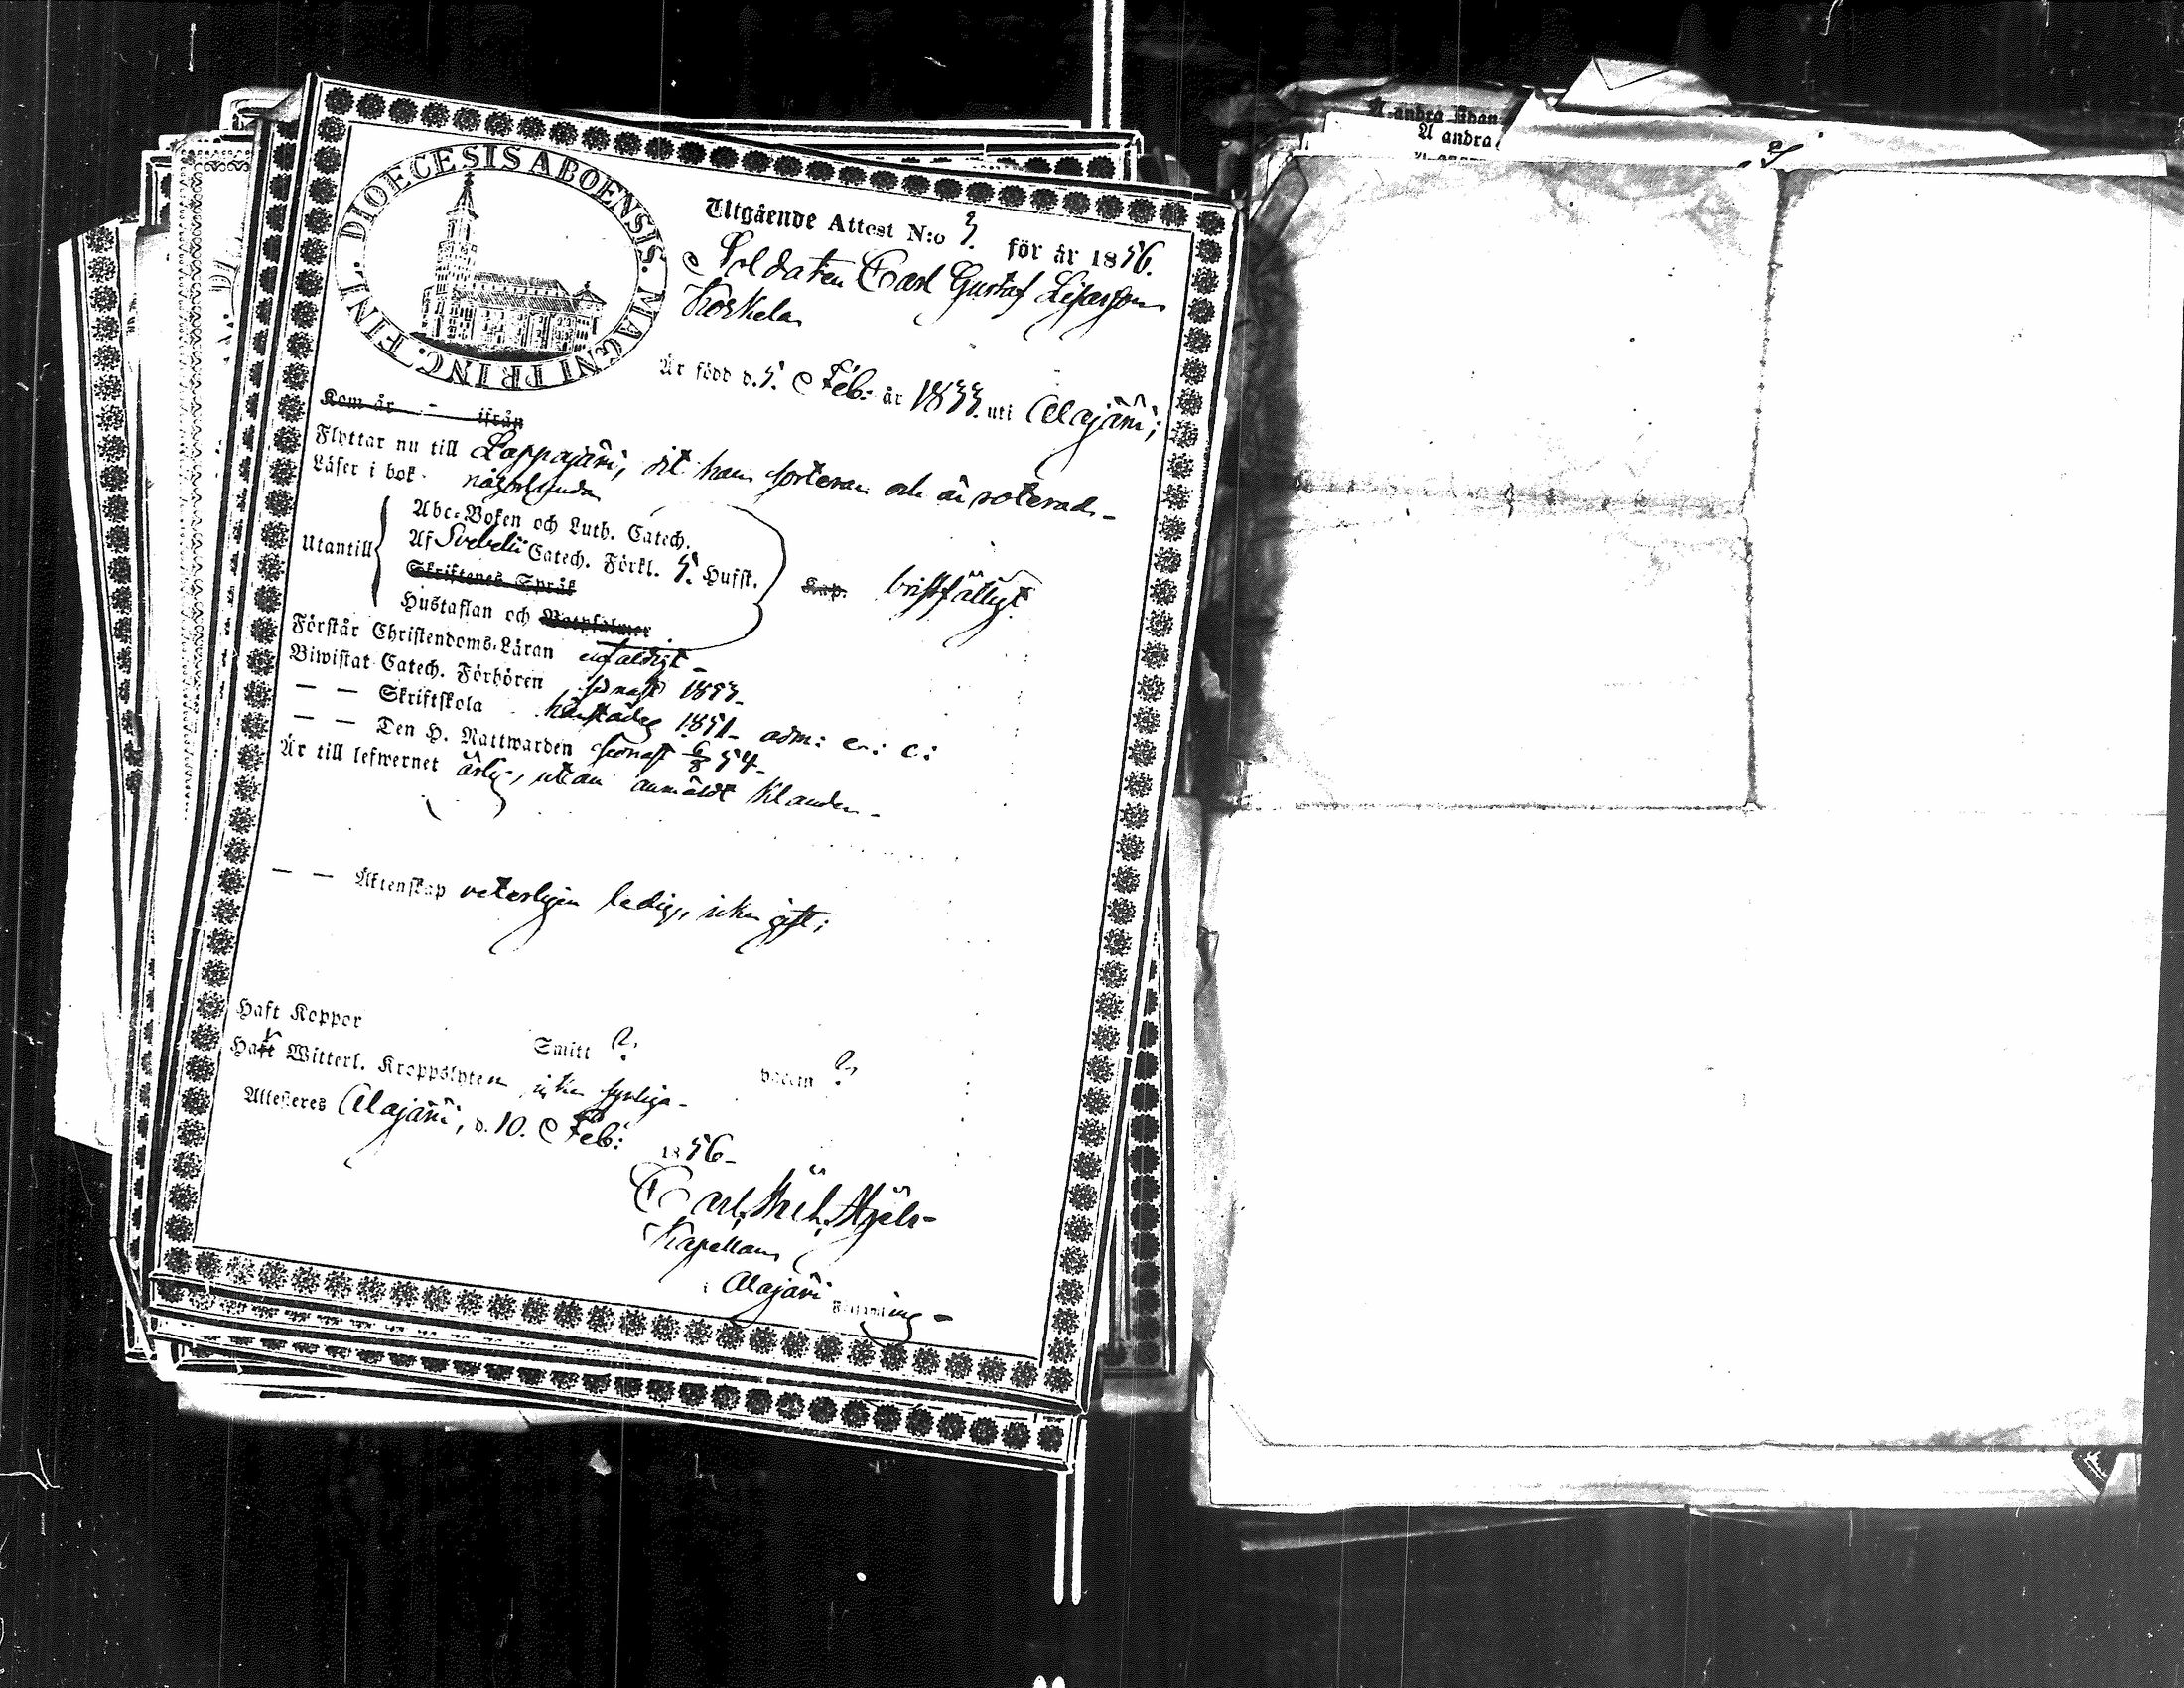 DIOECESIS ABOENSIS. MAGNI PRINC. FINL.
Utgående Attest N:o för år 1856.
Soldaten Carl Gustaf
Koskela
Är född d. 5. Feb: år 1833. uti Alajärvi;
Kom år - ifrån
Flyttar nu till Lappajärvi, dit han sorterar och är roterad.-
Läser i bok någorlunda
Utantill
Abc-Boken och Luth. Catech.
Af Svebelii Catech. Förkl. 5. Hufst.
Skriftenes Språk
Hustaflan och Botpsalmer
Kap. bristfälligt
Förstår Christendoms-Läran enfaldigt -
Biwistat Catech. Förhören sednast 1853.
— — Skriftskola härstädes 1851- adm: e: c:
— — Den H. Nattwarden sednast 6/8 54-
Är till lefwernet ärlig, utan anmäldt klander -
— — Äktenskap veterligen ledig, icke gift;
Haft Koppor Smitt ? vaccin ?
Haft Witterl. Kroppslyten icke synliga -
Attesteres Alajärvi, d. 10. Feb: 1856-
Carl
Kapellan
i Alajärvi Församling -
Å andra sidan
Å andra